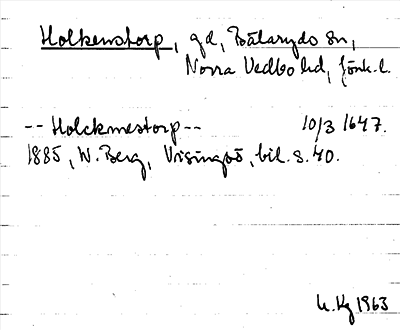 Holkenstorp, gd, Bälaryds sn,
Norra Vedbo hd, Jönk. l.
-- Holckmestorp -- 10/3 1647.
1885, W. Berg, Visingsö, bil. s. 40.
1963